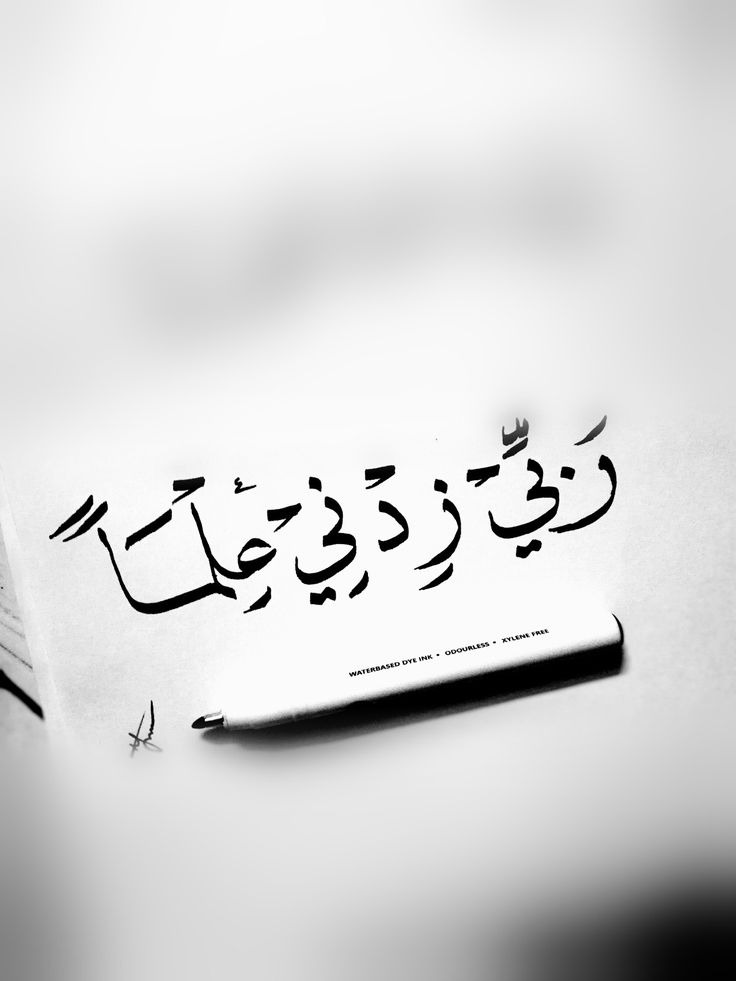 رَبِّيْ زِدْنِيْ عِلْمَاً
WATERBASED DYE INK • ODOURLESS • XYLENE FREE